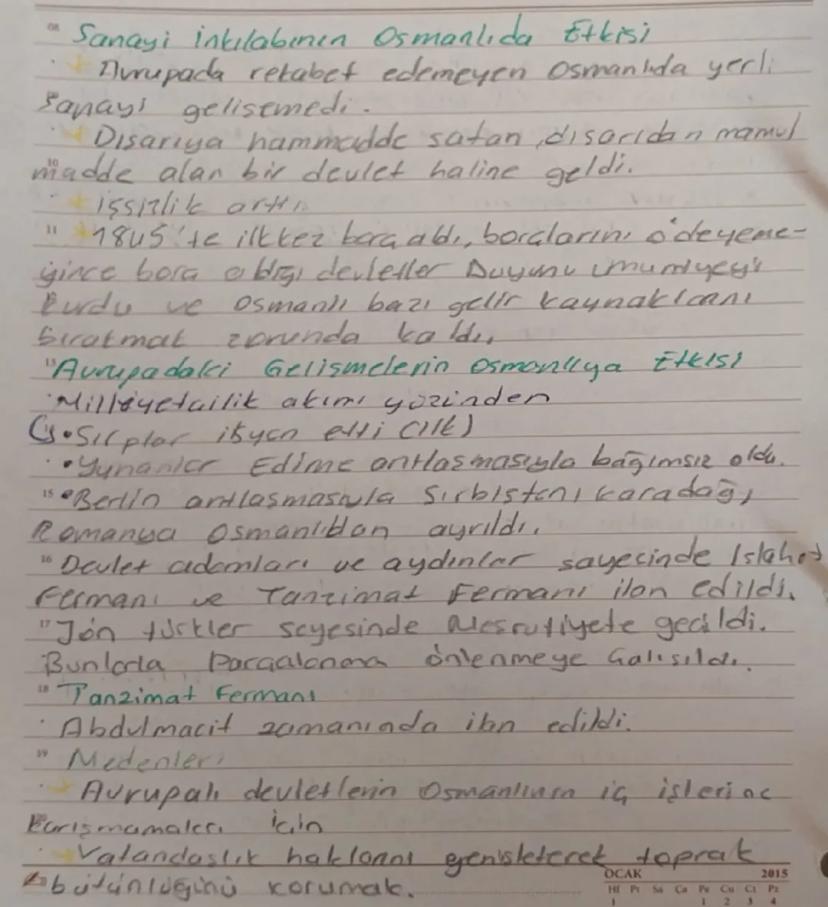 08 Sanayi inkılabının Osmanlıda Etkisi
Avrupada rekabet edemeyen Osmanlıda yerli
sanayi gelisemedi.
Dısarıya hammadde satan, dısarıdan mamul
10 madde alan bir devlet haline geldi.
işsizlik arttı
11 1845'te ilk kez borç aldı, borclarını ödeyeme-
yince borç aldıgı devletler Duyunu umumiyeyi
kurdu ve Osmanlı bazı gelir kaynaklarını
bırakmak zorunda kaldı,
13 Avrupadaki Gelismelerin Osmanlıya Etkisi
Milliyetcilik akımı yüzünden
• Sırplar isyan etti (ilk)
• Yunanlar Edirne antlasmasıyla bağımsız oldu.
15 • Berlin antlasmasıyla Sırbistan, Karadağ,
Romanya Osmanlıdan ayrıldı.
16 Devlet adamları ve aydınlar sayesinde Islahat
Fermanı ve Tanzimat Fermanı ilan edildi.
17 Jön türkler sayesinde Mesrutiyete gecildi.
Bunlarla Parçalanma önlenmeye Calısıldı.
18 Tanzimat Fermanı
Abdulmacit zamanında ilan edildi.
19 Nedenleri
Avrupalı devletlerin Osmanlının iç işlerine
karışmamaları icin
Vatandaslık haklarını genisleterek toprak
bütünlügünü korumak.
OCAK 2015
Ht Pt Sa Ça Pe Cu Ct Pz
1 1 2 3 4